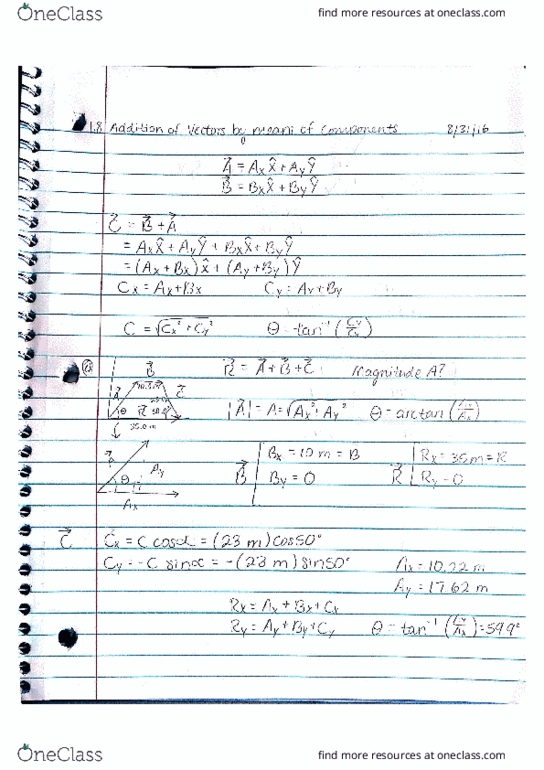 OneClass find more resources at oneclass.com
1.8 Addition of Vectors by means of Components 8/31/16
A⃗ = AₓX̂ + AᵧŶ
B⃗ = BₓX̂ + BᵧŶ
C⃗ = B⃗ + A⃗
= AₓX̂ + AᵧŶ + BₓX̂ + BᵧŶ
= (Aₓ + Bₓ)X̂ + (Aᵧ + Bᵧ)Ŷ
Cₓ = Aₓ + Bₓ Cᵧ = Aᵧ + Bᵧ
C = √(Cₓ² + Cᵧ²) θ = tan⁻¹(Cᵧ/Cₓ)
B⃗ R⃗ = A⃗ + B⃗ + C⃗ Magnitude A?
A⃗ C⃗
θ R⃗ |A⃗| = A = √(Aₓ² + Aᵧ²) θ = arctan(Aᵧ/Aₓ)
35.0m
Bₓ = 10m = B Rₓ = 35m = R
θ Aᵧ B⃗ Bᵧ = 0 R⃗ Rᵧ = 0
Aₓ
C⃗ Cₓ = C cosα = (23 m)cos50°
Cᵧ = -C sinα = -(23 m)sin50° Aₓ = 10.22 m
Aᵧ = 17.62 m
Rₓ = Aₓ + Bₓ + Cₓ
Rᵧ = Aᵧ + Bᵧ + Cᵧ θ = tan⁻¹(Aᵧ/Aₓ) = 59.9°
OneClass find more resources at oneclass.com